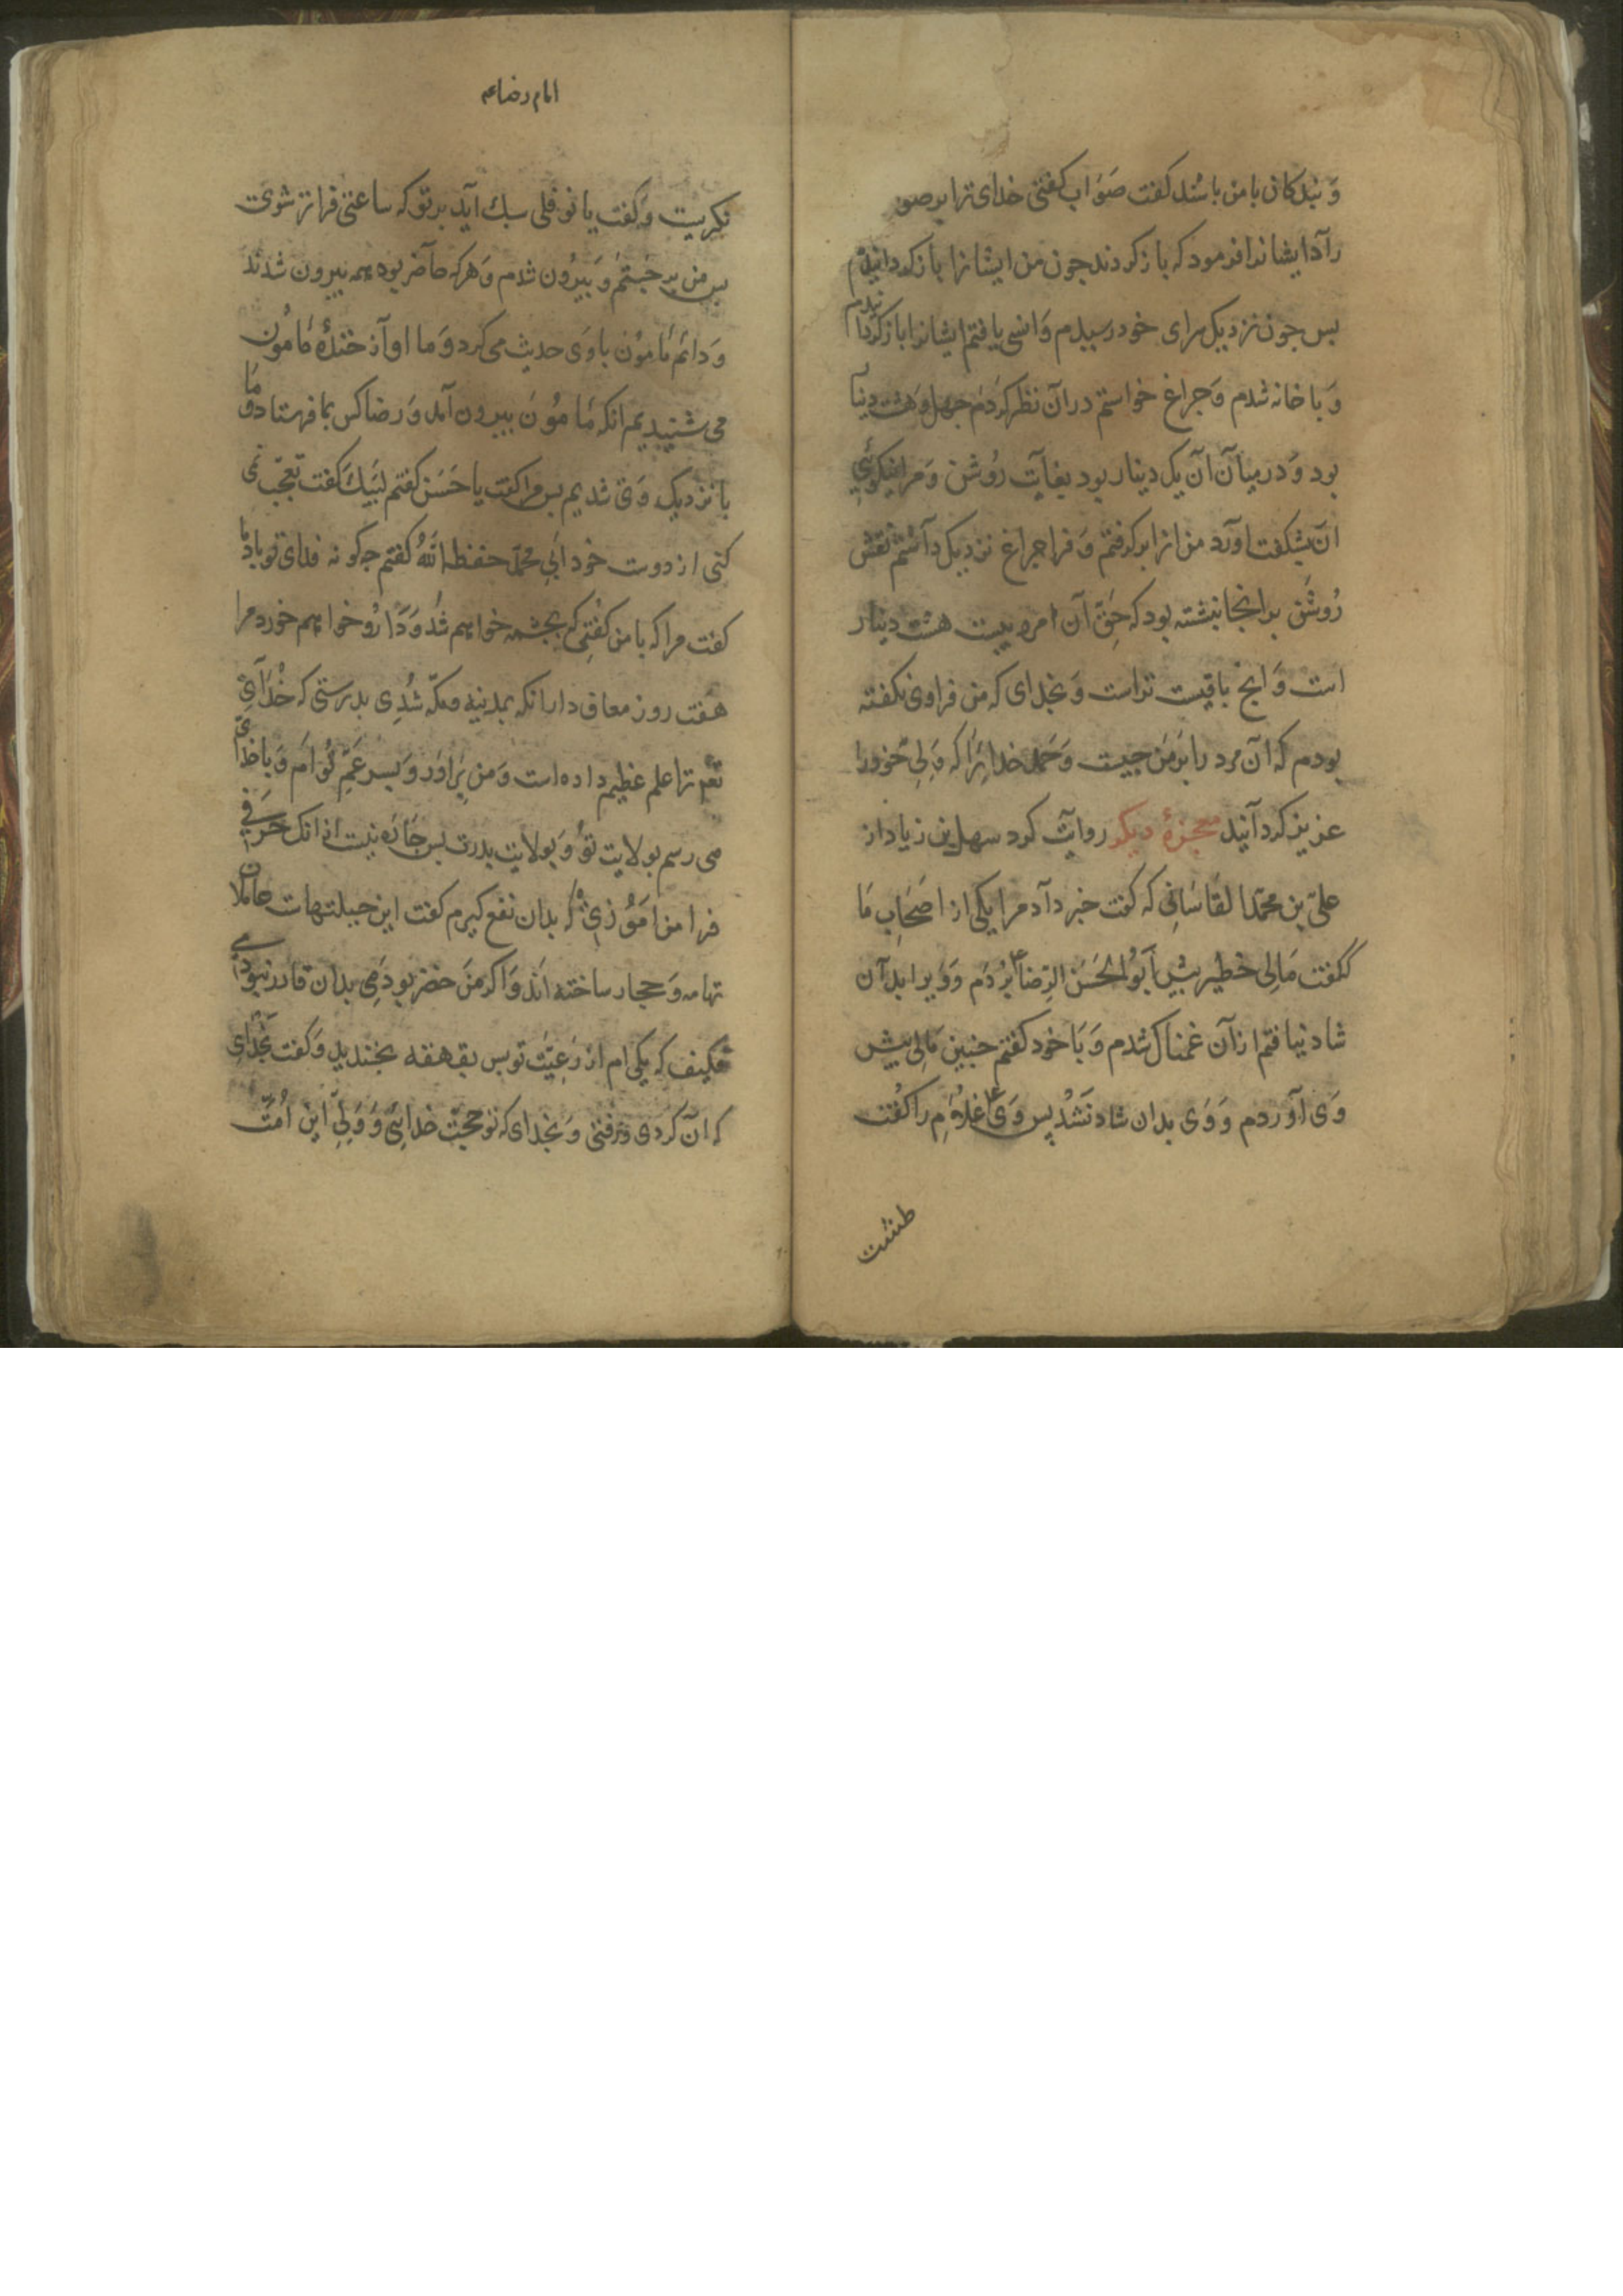 وَ بندکان با من باشند کفت صَوَاب کفتی خدای ترا بر صو
رآدایشانرا فرمود که باز کردند چون من ایشانرا باز کردانیدم
بس جون نزدیک سرای خود رسیدم وَ انسی یافتم ایشانرا باز کردا نیدم
وَ با خانه شدم وَ جراغ خواستم در آن نظر کردم جهل و هشت دینا
بود وَ در میان آن یک دینار بود بغایت رُوشن وَ مرا نیکوئی
آن بشکفت اورد من انرا بر کرفتم وَ فرا جراغ نزدیک داشتم نقش
رُوشن بر انجا نبشته بود که حَقّ آن مرد بیست هشت دینار
است وَ انج باقیست تراست وَ بخدای که من فرا وی نکفته
بودم که آن مرد را بر من جیست وَ حمد خدایرا که وَلِیّ خود را
عزیز کردانید معجزهٔ دیکر روایت کرد سهل بن زیاد از
علیّ بن محمّد القاسَانی که کفت خبر داد مرا یکی از اصحَابِ مَا
که کفت مَالِی خطیر بیش اَبُو الحَسَن الرّضا ع بُردَم وَ وَیرا بدان
شاد نیافتم از آن غمناک شدم وَ بَا خود کفتم جنین مَالی بیش
وَی آوردم وَ وَی بدان شاد نَشُد پس وَی ع غلام را کُفت
طشت
امام رضا ع
نکریست وَ کفت یا نوفلی سبک آید بر تو که ساعتی فراتر شوی
بس من بر جَستم وَ بَیرُون شدم وَ هرکه حاضر بود همه بیرون شدند
وَ دائم مَامُون با وَی حدیث می کرد وَ ما اواز خندهٔ مَامُون
می شنیدیم انکه مَامُون بیرون آمد وَ رضا کس بما فرستاد وَ مَا
با نزدیک وَی شدیم بس مرا کفت یا حَسَن کفتم لبَّیک کفت تعجّب نمی
کنی از دوست خود ابی محمّد حفظه اللّٰه کفتم جه کونه فدای تو بادما
کفت مرا که با من کفتی که بجشمه خواهم شُد وَ دَارُو خواهم خورد مرا
هفت روز معاف دار انکه بمدینه و مکّه شُدِی بدرستی که خُدای
تعم ترا علم عظیم داده است وَ من برَادَر وَ بسر عَمّ تُو اَم وَ با خدای
می رسم بولایت تو وَ بولایت بدرت بس جَاره نیست از انک حَرفی
فرا من امُوزی که بدان نفع کیرم کفت این حیلتهات حاملان
تهامه وَ حجاز ساخته اند وَ اکر من حضر بودَمی بدان قادر نبودی
فکیف که یکی ام از رَعِیَّت تو بس بقهقهه بخندید وَ کفت بخُدای
که آن کردی و برفتی وَ بخدای که تو حجّت خدائی وَ وَلِیّ این اُمّت